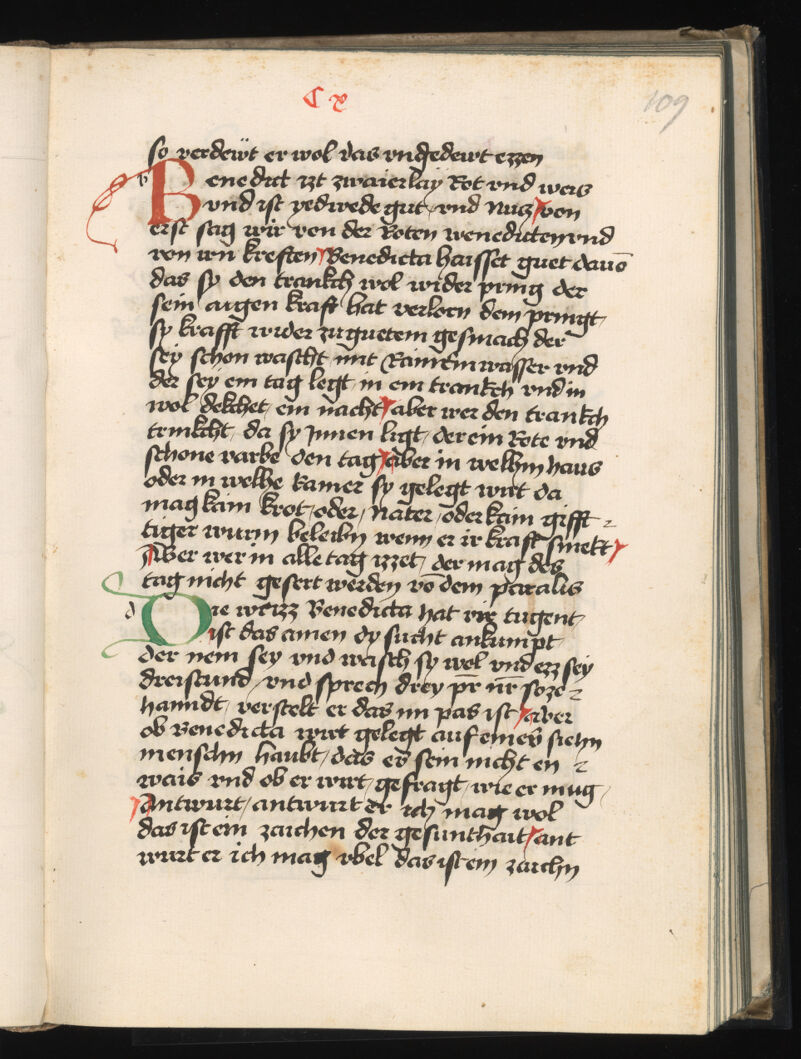 C x
109
so verdewt er wol das vngedewt ezzen
b Benedict izt zwaierlay Rot vnd weis
vnd ist yedwede gut vnd nuz von
erst sag wir von der Roten wenedicten vnd
von irn kreften Benedicta haisset guet dauō
das sy den krankch wol wider pring der
sein augen kraft hat verlorn dem pringt
sy krafft wider zu guetem gesmach der
sey schon wascht mit Rainem wasser vnd
der sey ein tag legt in ein trankch vnd in
wol dekchet ein nacht aber wer den trankch
trinkcht da sy Innen ligt der ein Rote vnd
schone varbe den tag aber in welhm haus
oder in welhe kamer sy gelegt wirt da
mag kain krot oder Nater oder kain gifft
tiger wurm beleibn wenn er ir kraft smekt
Aber wer in alle tag izzet der mag des
tag nicht gesert werden vō dem paralis
d Die weizz Benedicta hat vir tugent
ist das ainen dy sucht ankumpt
der nem sey vnd wasch sy wol vnd ezz sey
dreistund vnd sprech drey pr̄ nr̄ soze
hanndt verstelt er das im pas ist aber
ob Benedicta wirt gelegt auf eines siehn
menschn haubt das er sein nicht en
wais vnd ob er wirt gefragt wie er mug
Antwurt antwurt er ich mag wol
das ist ein zaichen der gesunthait ant
wurt er ich mag vbel das ist ein zaichn